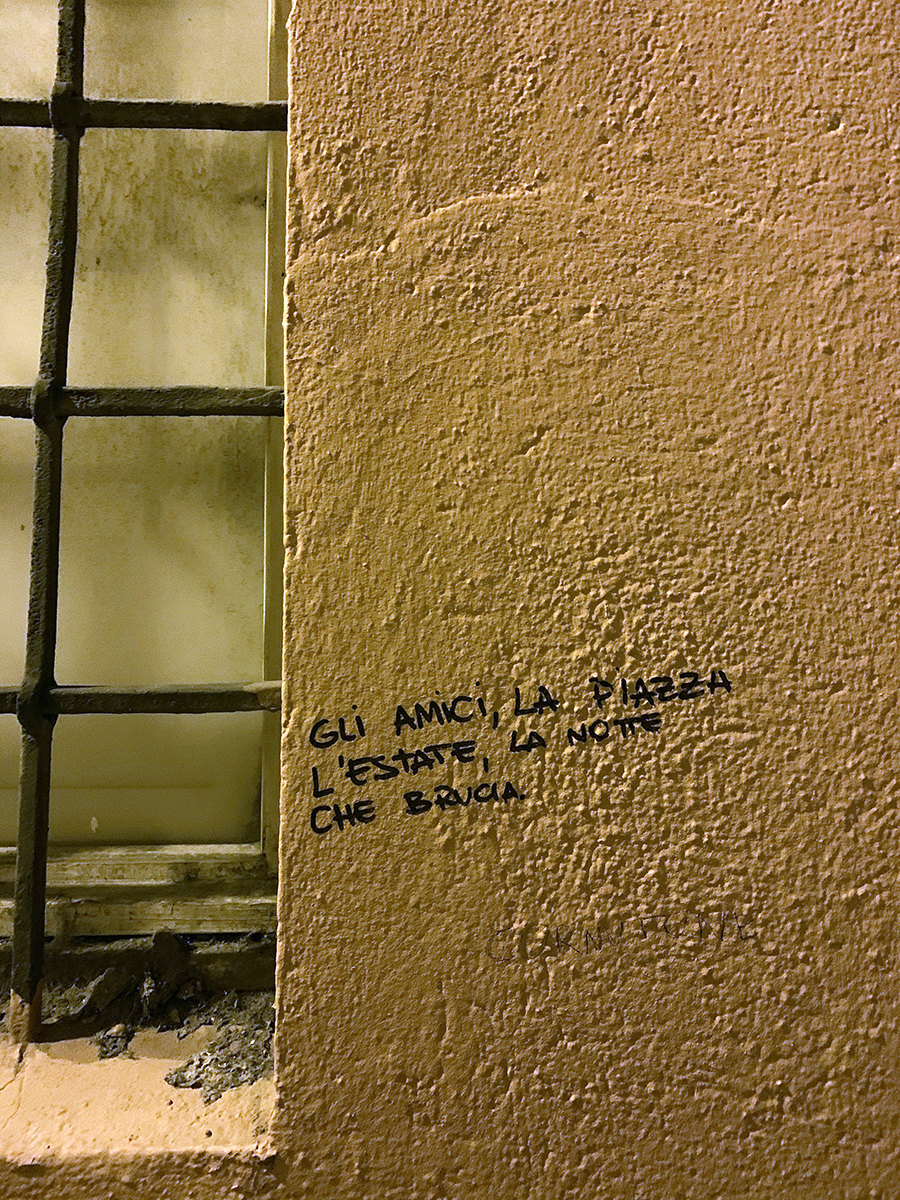 GLI AMICI, LA PIAZZA
L'ESTATE, LA NOTTE
CHE BRUCIA.